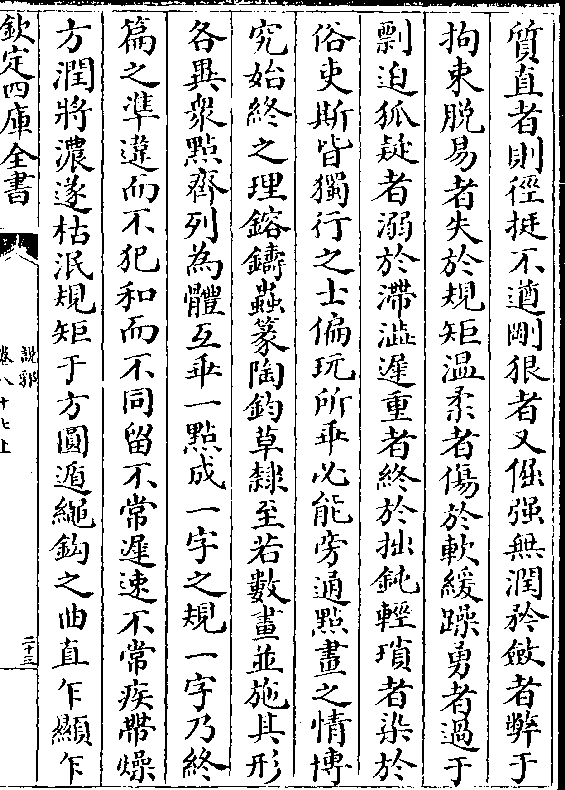 質直者則徑挺不遒剛狠者又倔强無潤矜斂者弊于
拘束脱易者失於規矩温柔者傷於軟緩躁勇者過于
剽迫狐疑者溺於滯澁遲重者終於拙鈍輕瑣者染於
俗吏斯皆獨行之士偏玩所乖必能旁通點畫之情博
究始終之理鎔鑄蟲篆陶鈞草隸至若數畫並施其形
各異衆點齊列為體互乖一點成一字之規一字乃終
篇之準違而不犯和而不同留不常遲速不常疾帶燥
方潤將濃遂枯泯規矩于方圓遁繩鈎之曲直乍顯乍
欽定四庫全書
説郛
卷八十七上
二十三